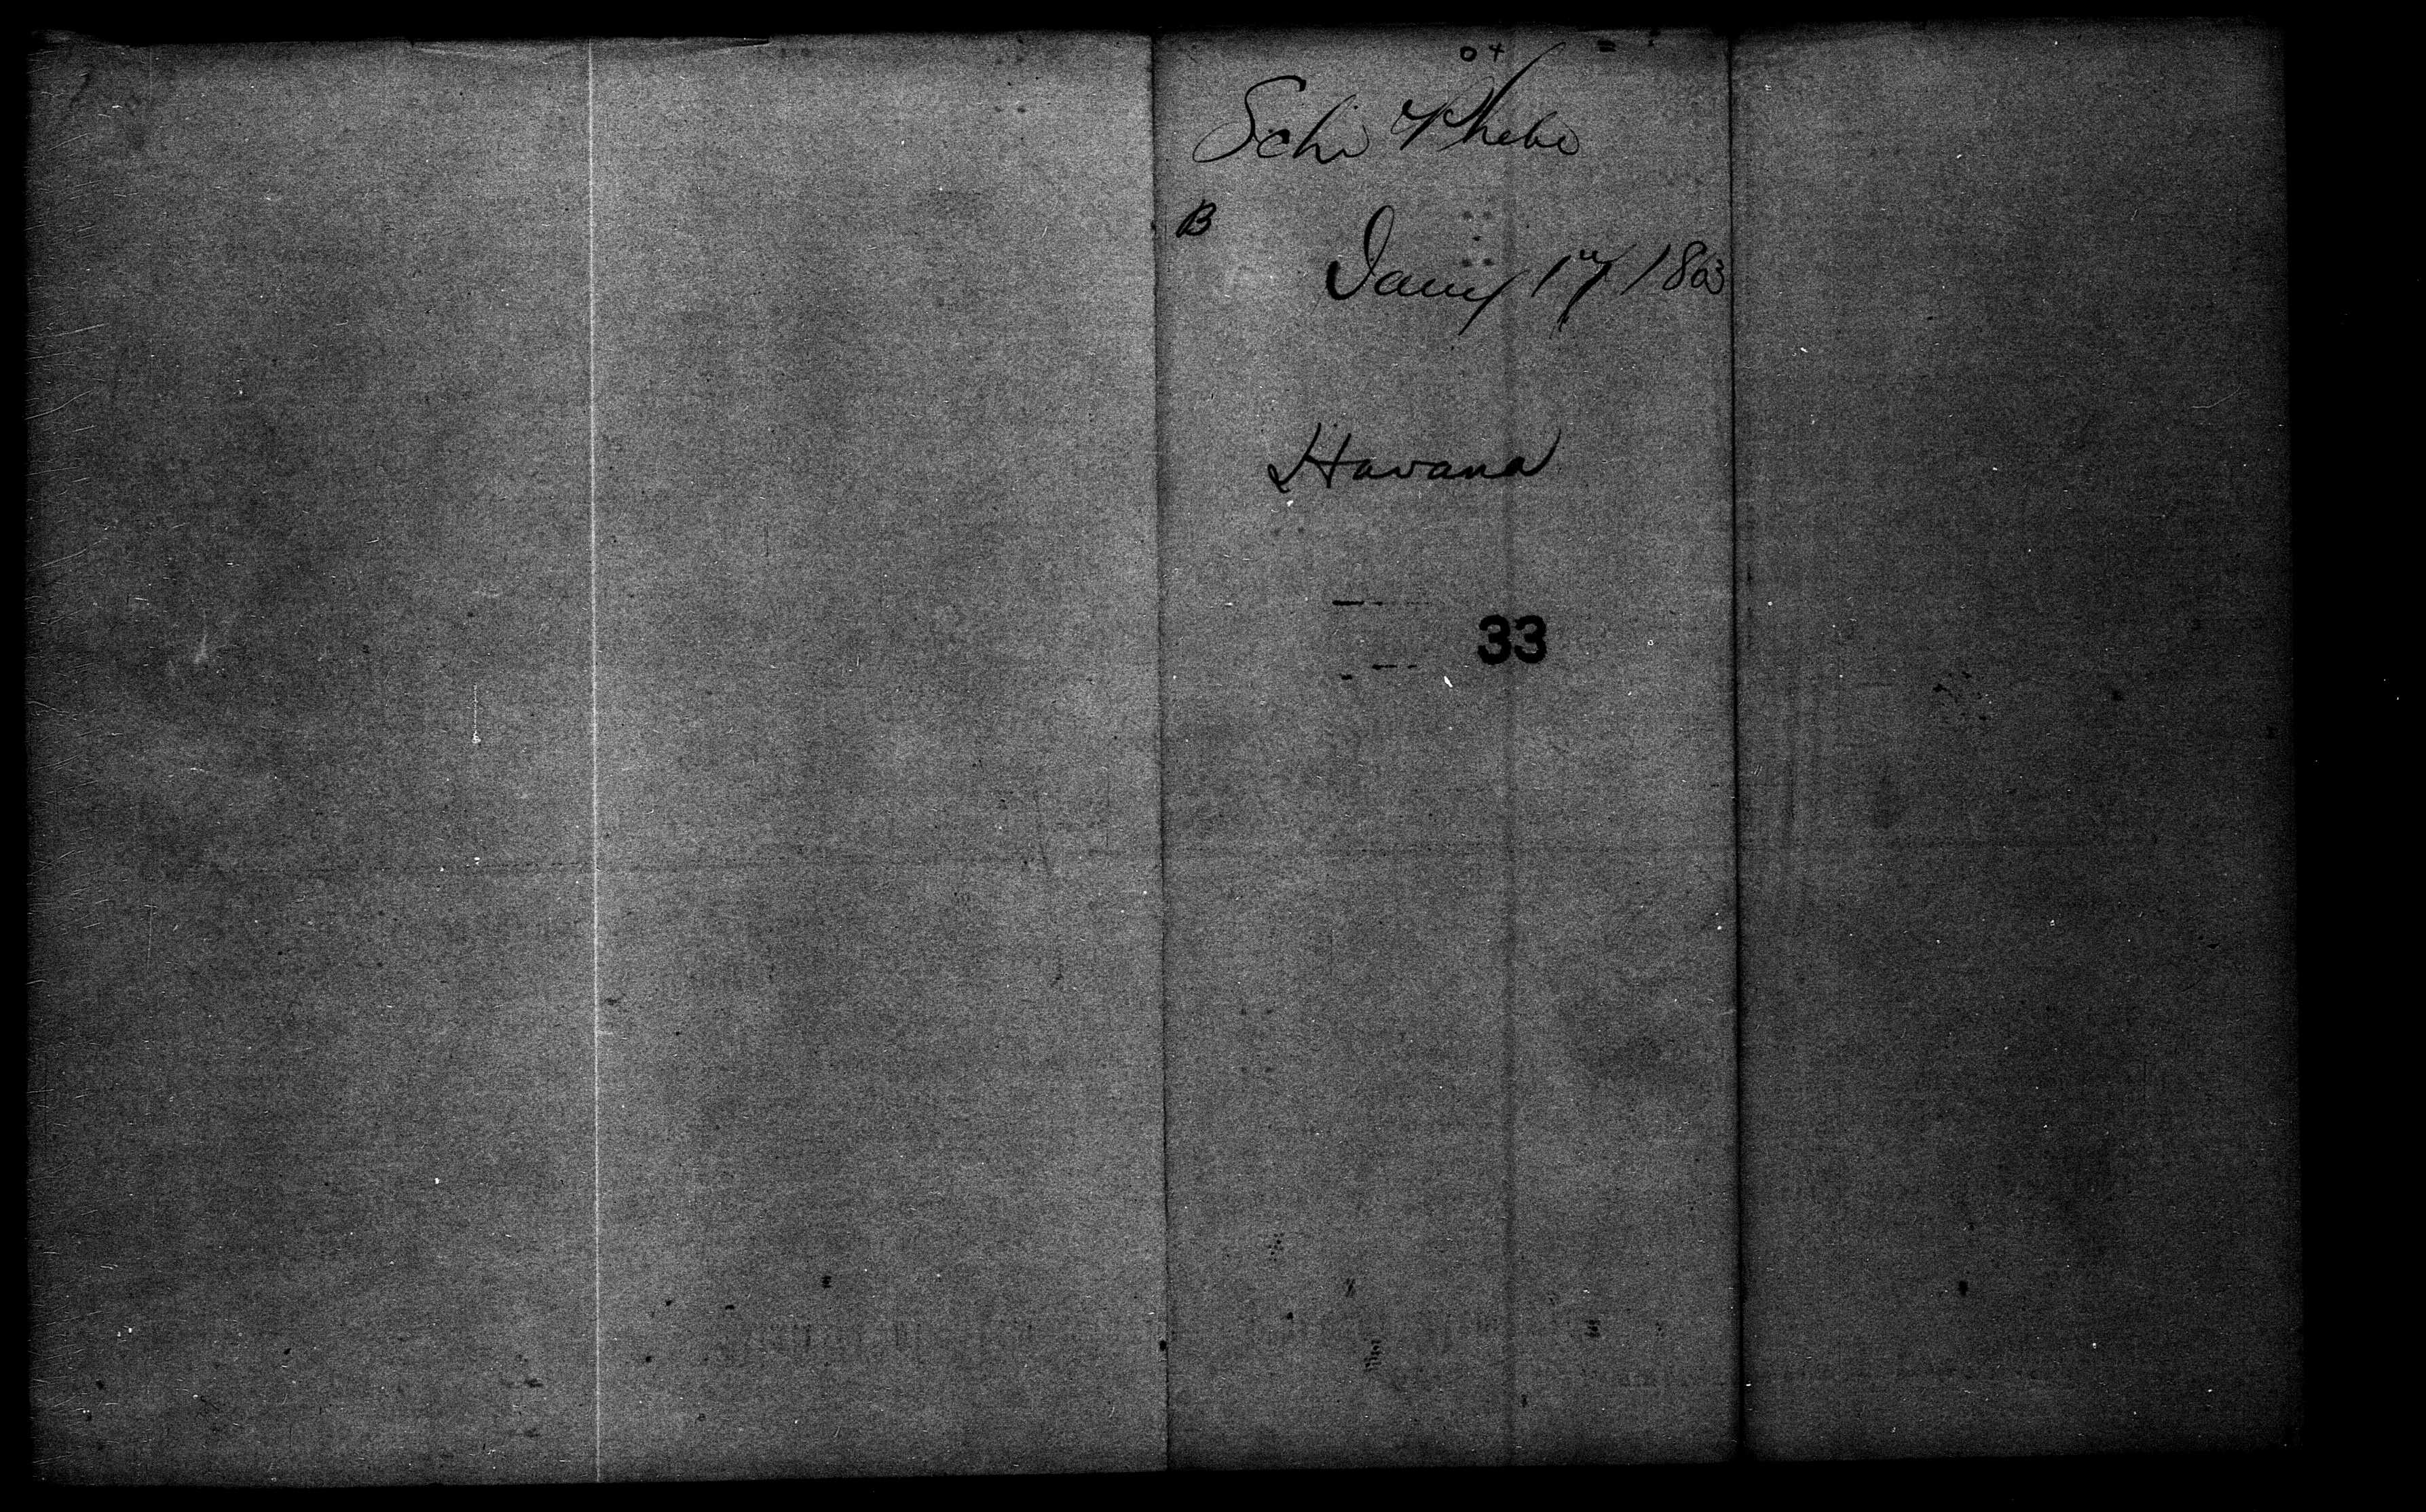 o +
Schr Phebe
B
Jany 17 1863
Havana
33